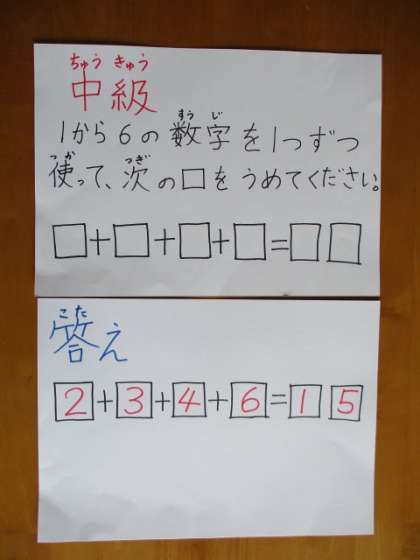 ちゅう きゅう
中級
すう じ
1から6の数字を1つずつ
つか つぎ
使って、次の□をうめてください。
□+□+□+□=□□
こた
答え
2+3+4+6=15